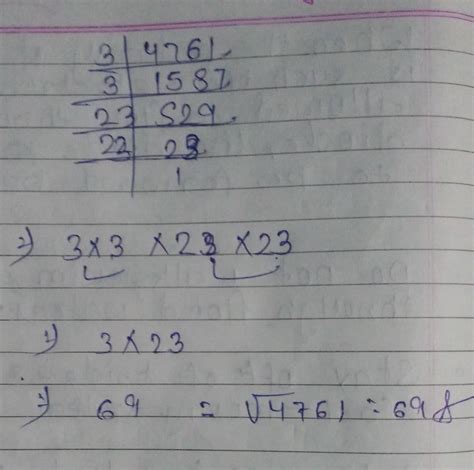 3 | 4761
3 | 1587
23 | 529
23 | 23
1
⇒ 3×3 ×23 ×23
⇒ 3×23
⇒ 69 = √4761 = 69